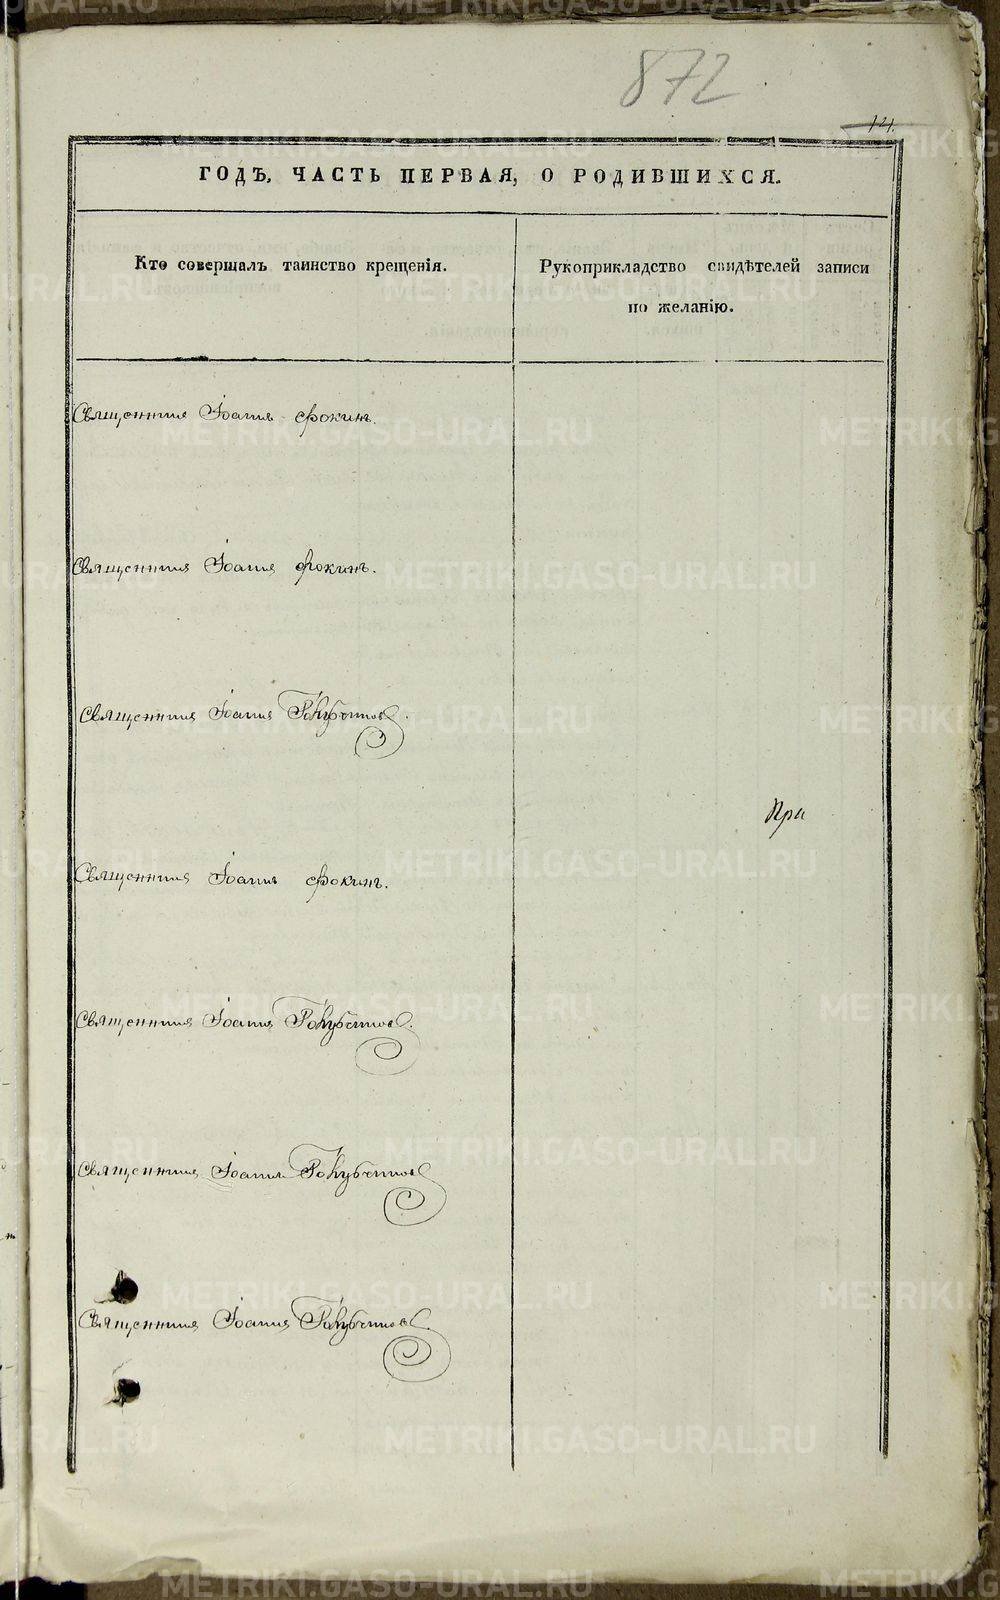 872
121.
ГОДЪ, ЧАСТЬ ПЕРВАЯ, О РОДИВШИХСЯ.
Кто совершалъ таинство крещенія.
Рукоприкладство свидѣтелей записи
по желанію.
Священникъ Іоаннъ Фокинъ.
Священникъ Іоаннъ Фокинъ.
Священникъ Іоаннъ
При
Священникъ Іоаннъ Фокинъ.
Священникъ Іоаннъ
Священникъ Іоаннъ
Священникъ Іоаннъ
METRIKI.GASO-URAL.RU